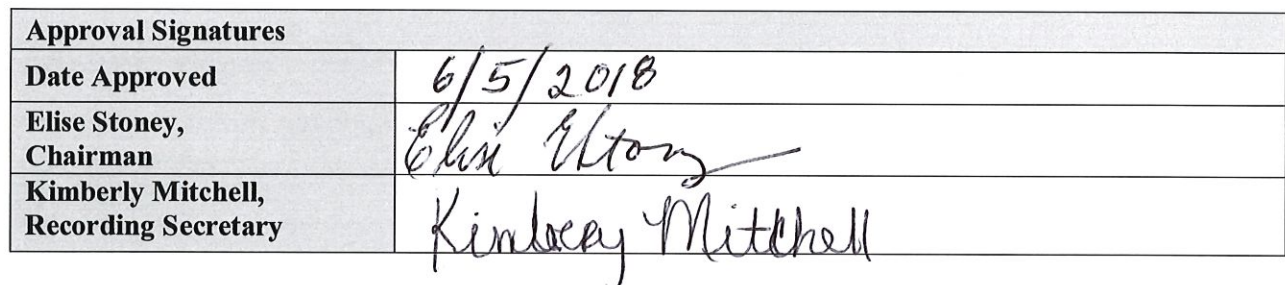 Approval Signatures
Date Approved 6/5/2018
Elise Stoney,
Chairman Elise
Kimberly Mitchell,
Recording Secretary Kimberly Mitchell